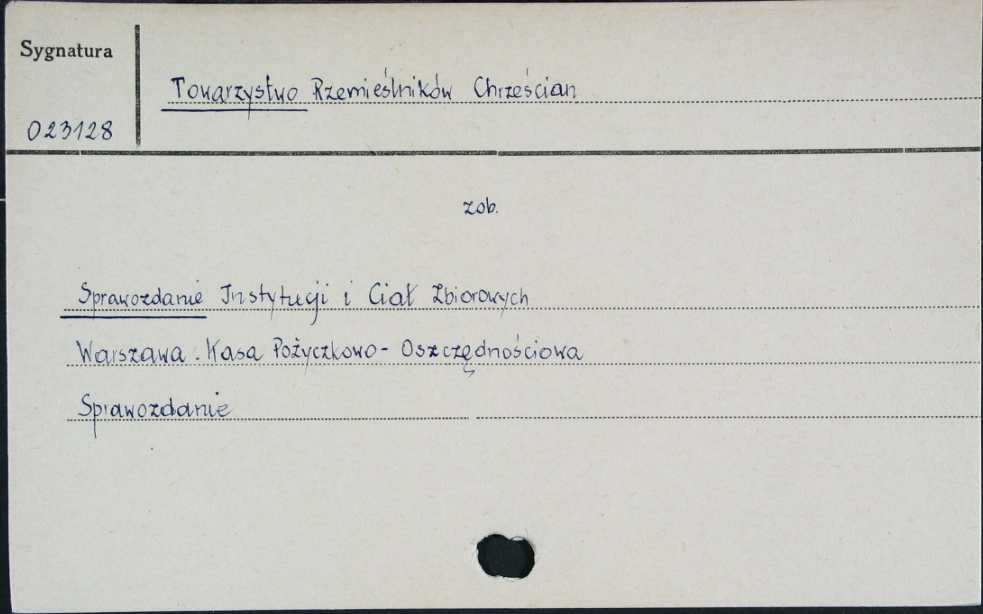 Sygnatura
Towarzystwo Rzemieślników Chrześcian
023128
zob.
Sprawozdanie Instytucji i Ciał Zbiorowych
Warszawa. Kasa Pożyczkowo-Oszczędnościowa
Sprawozdanie